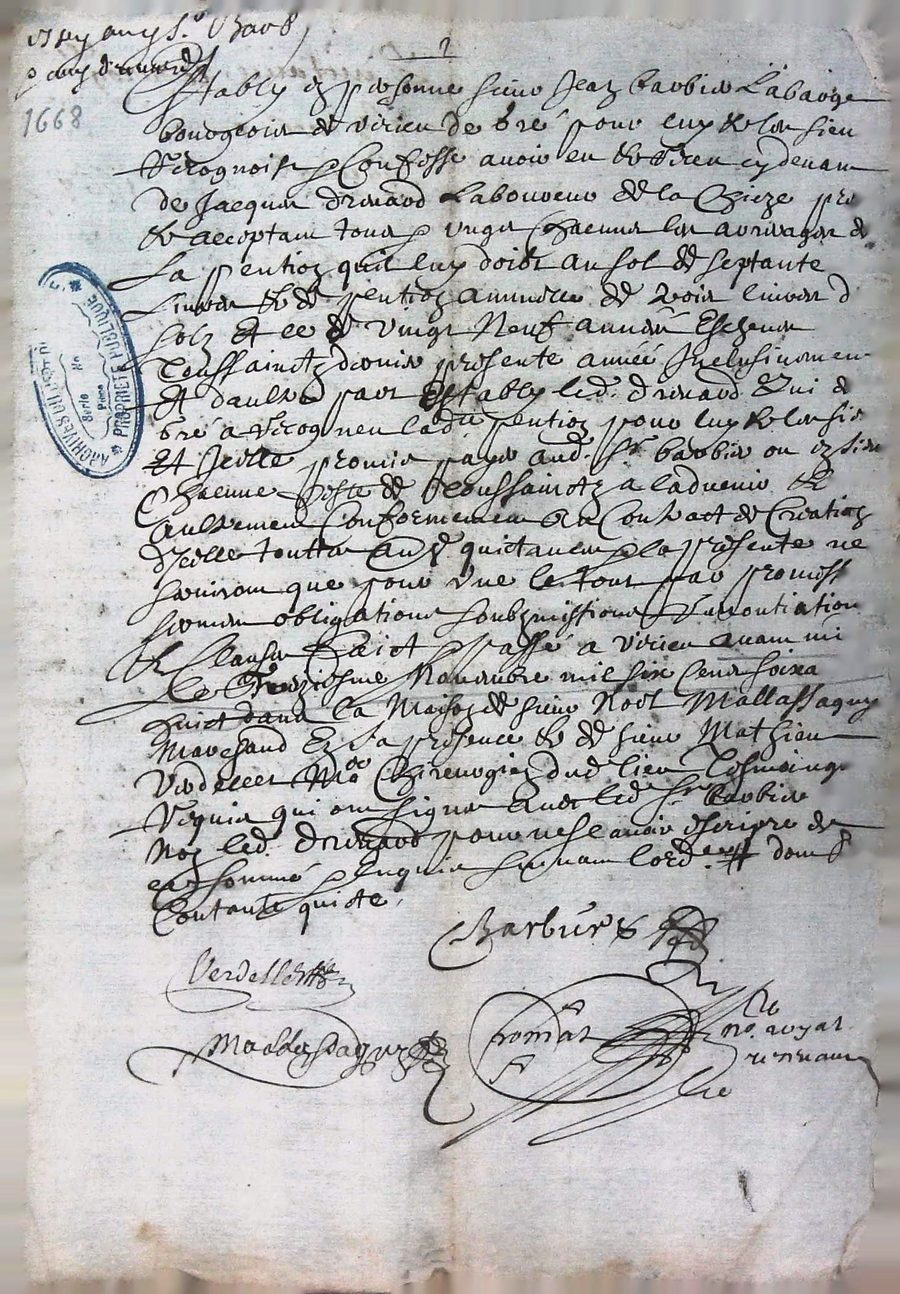 2
1668
Establi en personne sieur Jean barbier Labarge
bourgeois de virieu de gré pour luy & les sien
Recognoist & Confesse avoir eu & Receu cy devant
De Jacques drevard Laboureur de la Chieze pre
& acceptant tous & vngs Chacuns les arrerages de
La pention quil luy doibt au sol de septante
Livres & de pention annuelle de trois livres
solz Et ce de vingt Neuf années Escheues
Toussainctz dernier presente année Inclusivemen
Et daultre part Establi led. drevard Qui de
gré a Recogneu lad. pention pour luy & les si
Et Icelle promis payer aud. Sr barbier ou es sien
Chacune feste de Toussainctz a ladvenir &
aultrement Conformement au Contract de Creation
dIcelle touttes aud. quictances & la presente ne
serviront que pour vne le tout par promiss
serment obligations soubzmissions Renontiation
& Clauses Faict & passé a virieu avant mi
Le Troiziesme Novembre mil six cens soixa
huict dans la Maison de sieur Noel Mallassagny
Marchand En sa presence & de sieur Mathieu
Verdellet Me Chirurgien dud. lieu Tesmoings
Requis qui ont signé avec led. Sr barbier
Non led. drevard pour ne scavoir escripre de
ce sommé & enquis suivant lord.ce dont
Contant quicte
Barbier
Verdellet
Mallassagny
no. royal